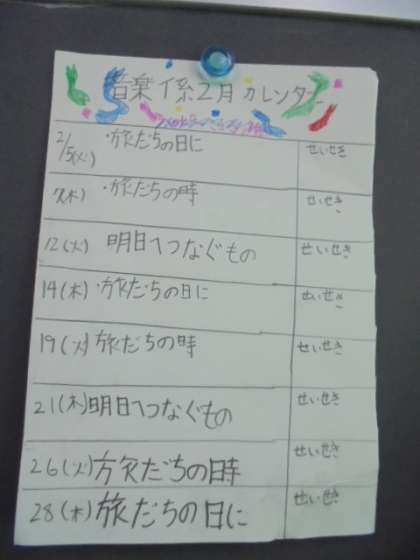 音楽係2月カレンダー
2/5(火) ・旅だちの日に せいせき
7(木) ・旅だちの時 せいせき
12(火) 明日へつなぐもの せいせき
14(木) ・旅だちの日に せいせき
19(火) 旅だちの時 せいせき
21(木) 明日へつなぐもの せいせき
26(火) 旅だちの時 せいせき
28(木) 旅だちの日に せいせき